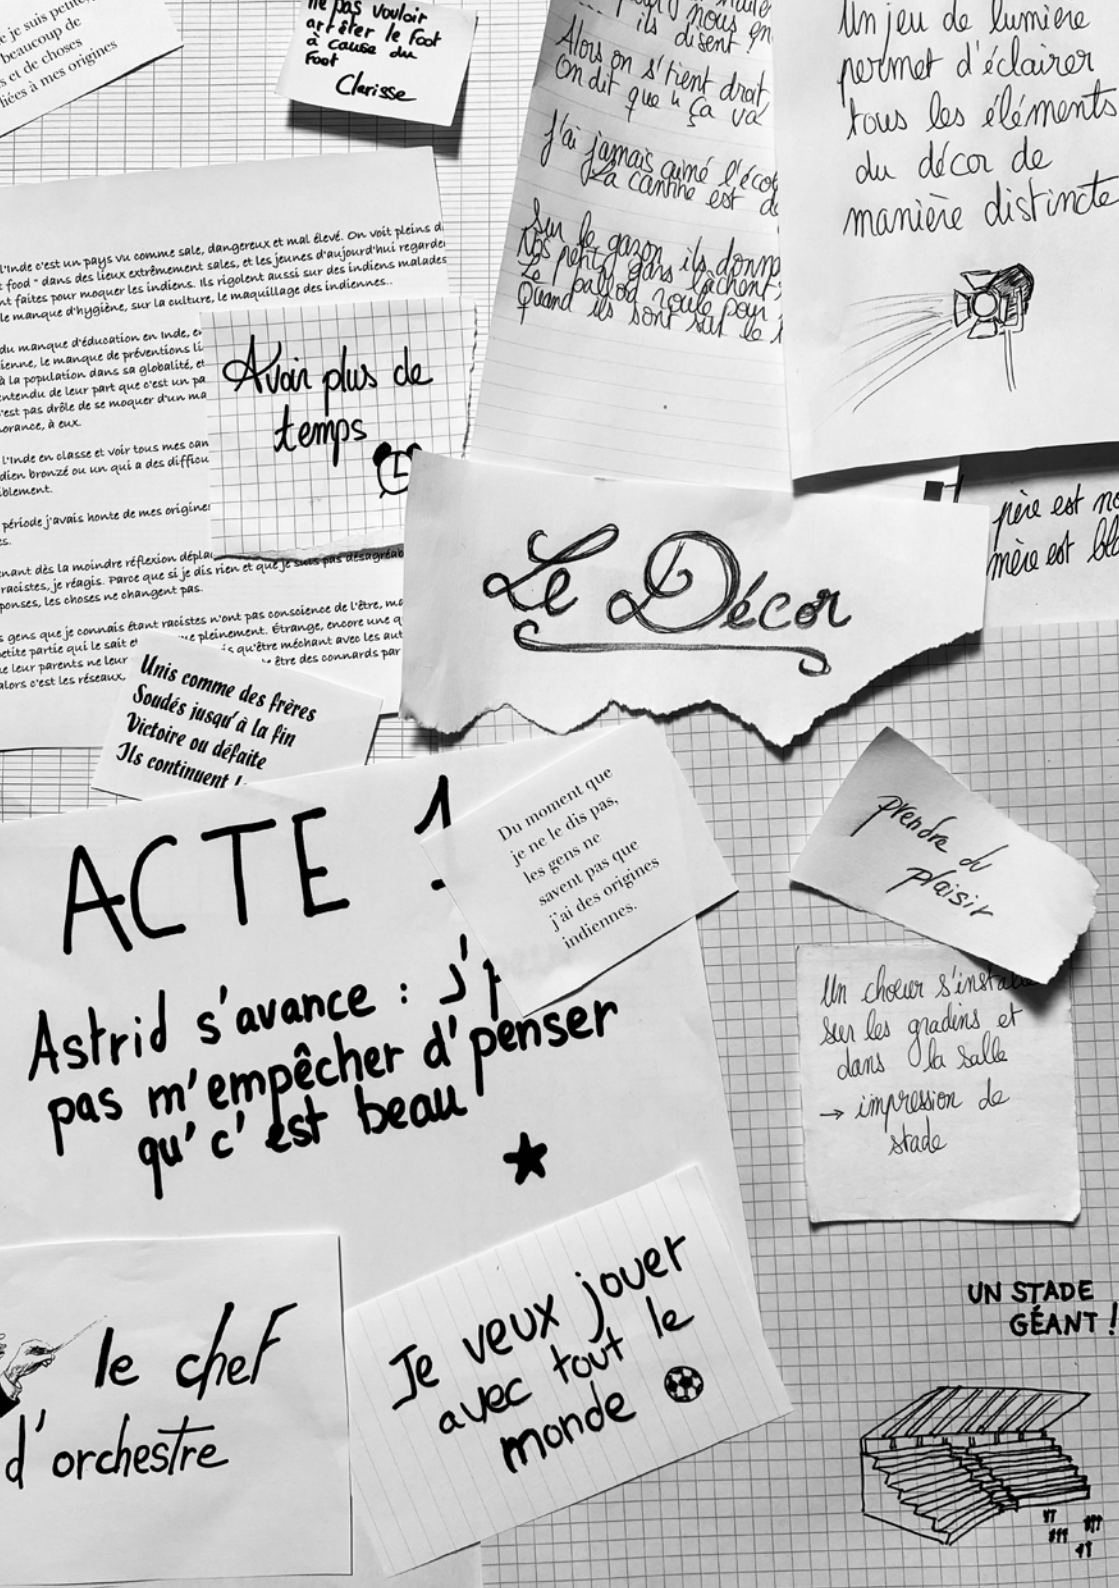 je suis petite,
beaucoup de
s et de choses
liées à mes origines
ne pas vouloir
arrêter le foot
à cause du
foot
Clarisse
nous en
ils disent ?
Alors on s'tient droit,
On dit que "ça va
J'ai jamais aimé l'éco
La cantine est d
Sur le gazon ils donn
Nos petits gars lâchent
Le ballon roule pour
Quand ils sont sur le
Un jeu de lumière
permet d'éclairer
tous les éléments
du décor de
manière distincte
l'Inde c'est un pays vu comme sale, dangereux et mal élevé. On voit pleins d
food " dans des lieux extrêmement sales, et les jeunes d'aujourd'hui regarde
nt faites pour moquer les indiens. Ils rigolent aussi sur des indiens malades
le manque d'hygiène, sur la culture, le maquillage des indiennes..
du manque d'éducation en Inde, e
ienne, le manque de préventions li
à la population dans sa globalité, et
entendu de leur part que c'est un pa
'est pas drôle de se moquer d'un ma
norance, à eux.
l'Inde en classe et voir tous mes cam
dien bronzé ou un qui a des difficu
iblement.
période j'avais honte de mes origines
es.
nant dès la moindre réflexion dépla
racistes, je réagis. Parce que si je dis rien et que je suis pas désagréab
ponses, les choses ne changent pas.
s gens que je connais étant racistes n'ont pas conscience de l'être, ma
etite partie qui le sait et pleinement. Étrange, encore une q
e leur parents ne leur s qu'être méchant avec les aut
alors c'est les réseaux, être des connards par
Avoir plus de
temps
Le Décor
père est no
mère est bla
Unis comme des frères
Soudés jusqu'à la fin
Victoire ou défaite
Ils continuent
ACTE 1
Du moment que
je ne le dis pas,
les gens ne
savent pas que
j'ai des origines
indiennes.
prendre du
plaisir
Astrid s'avance : J'p
pas m'empêcher d'penser
qu'c'est beau
Un choeur s'instal
sur les gradins et
dans la salle
→ impression de
stade
le chef
d'orchestre
Je veux jouer
avec tout le
monde
UN STADE
GÉANT !